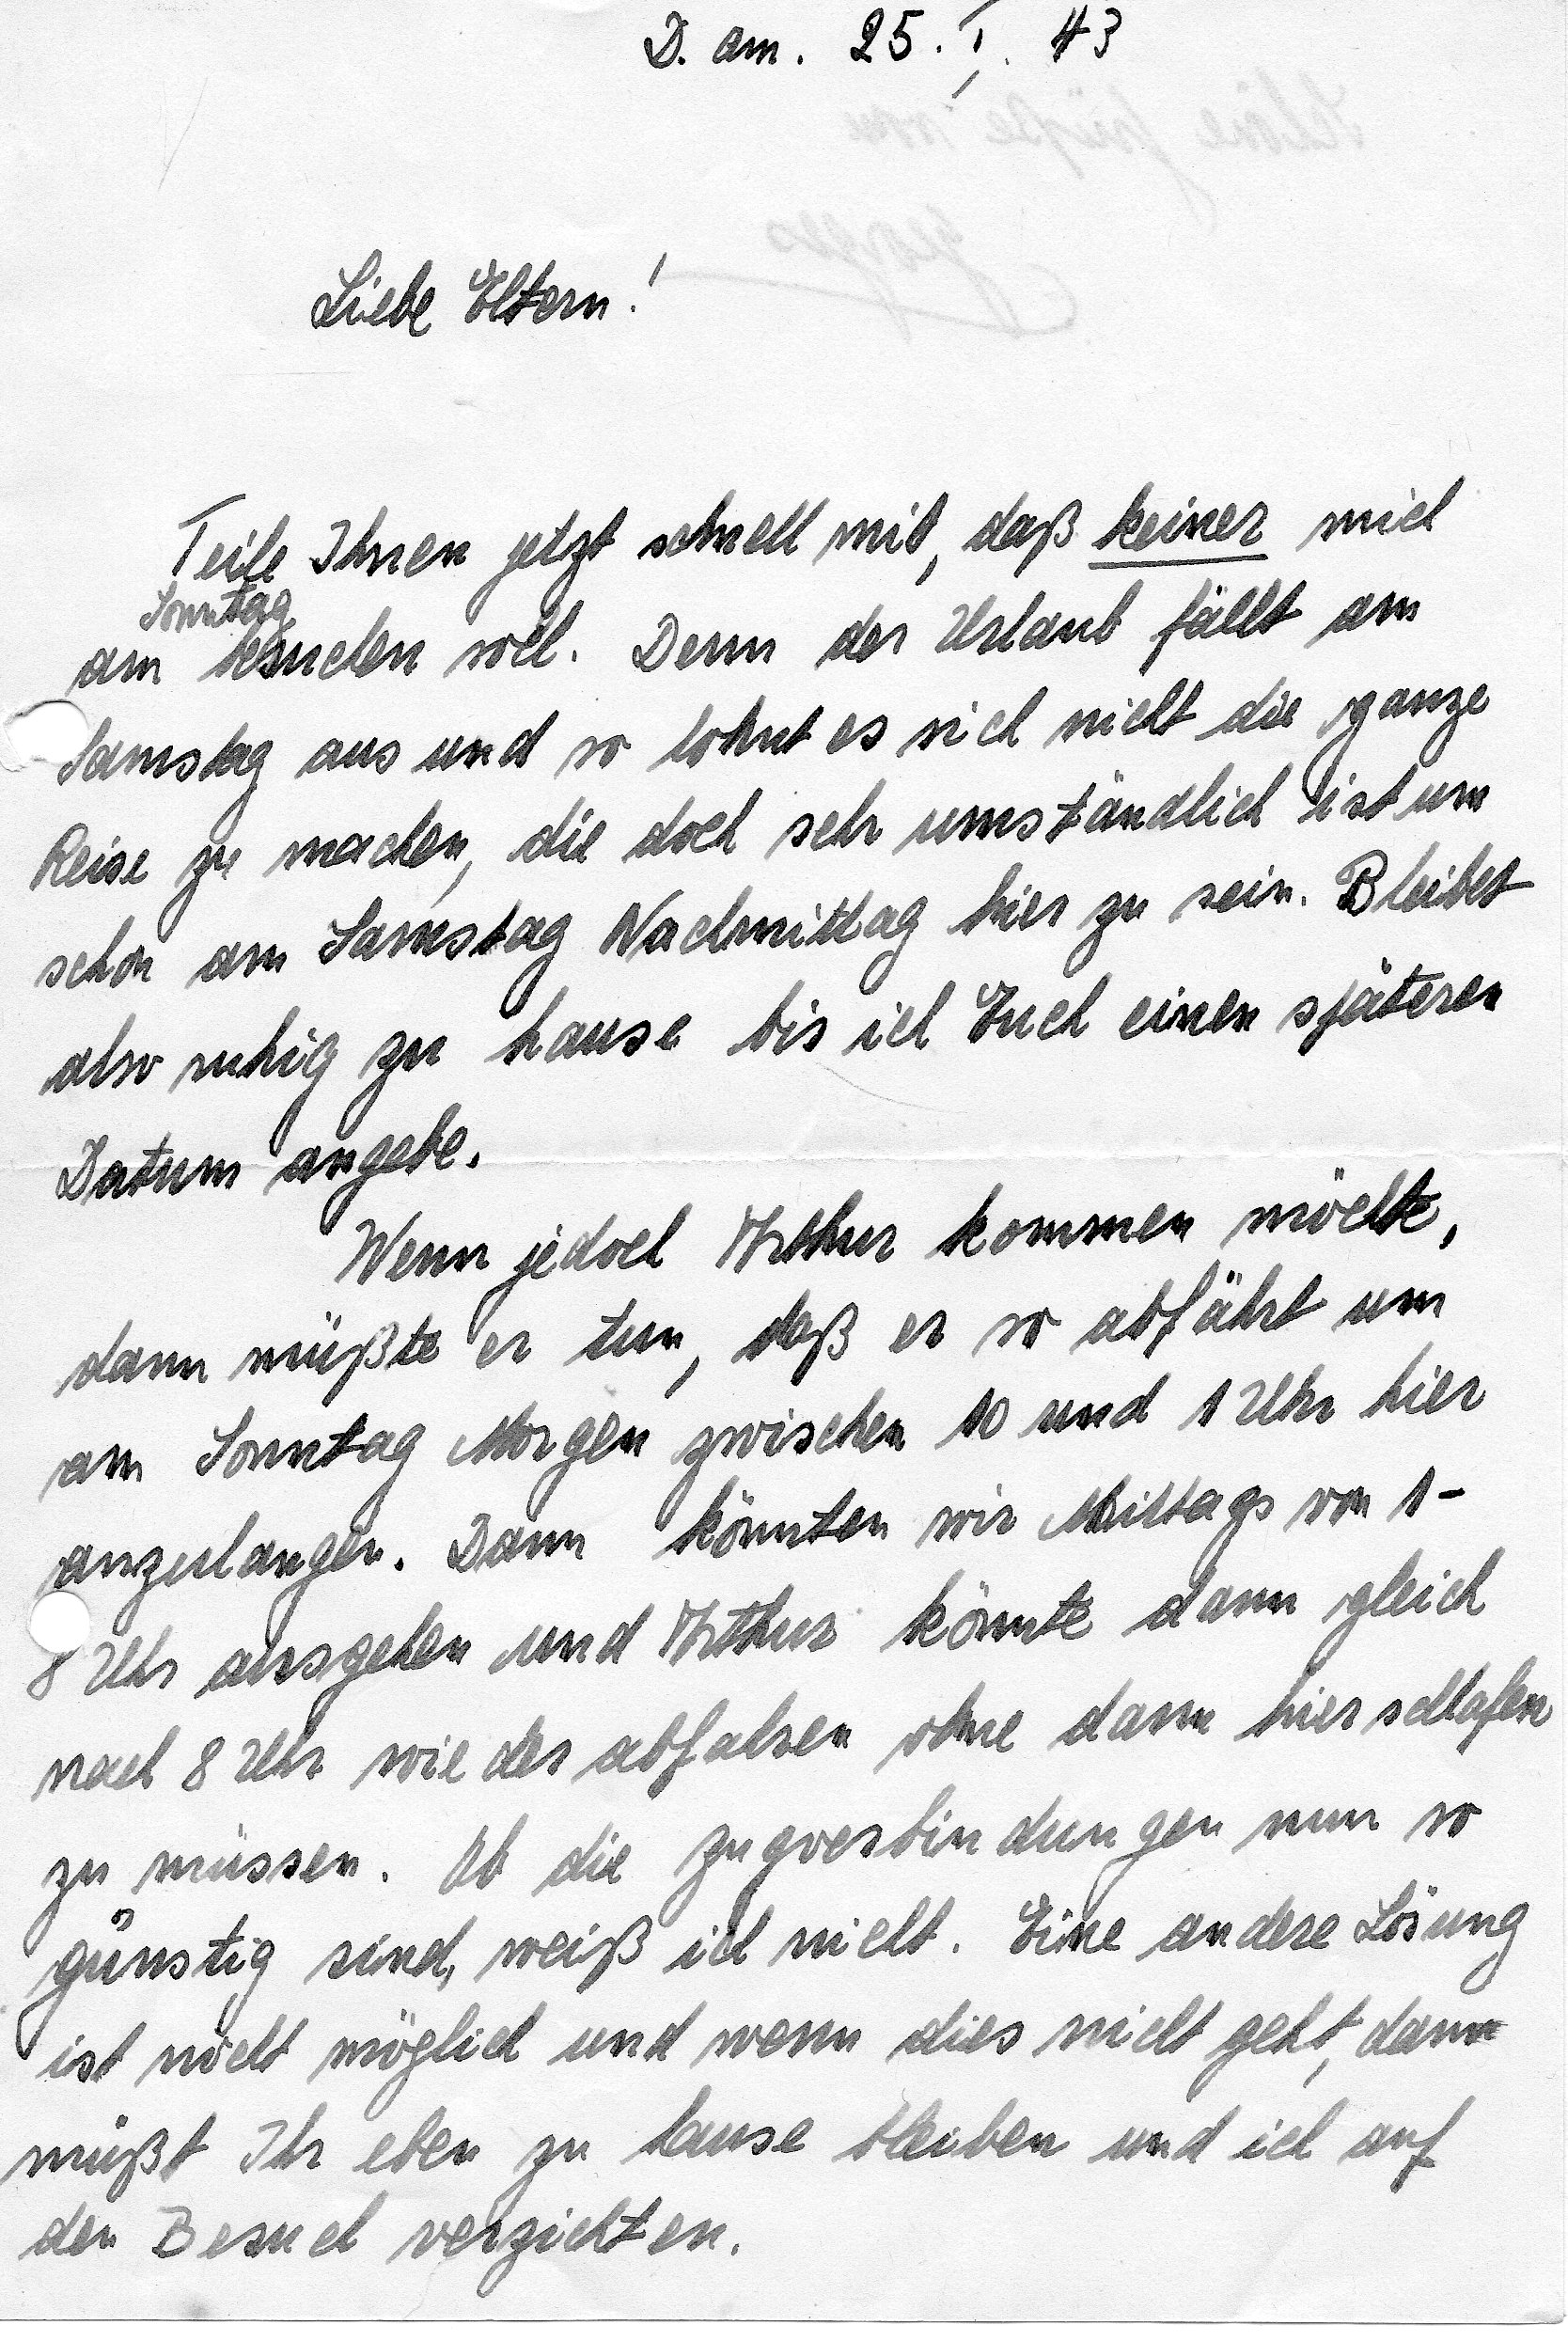 D. am. 25. I. 43
Schöne Grüße von
Georges
Liebe Eltern!
Teile Ihnen jetzt schnell mit, daß keiner mich
Sonntag
am besuchen soll. Denn der Urlaub fällt am
Samstag aus und so lohnt es sich nicht die ganze
Reise zu machen, die doch sehr umständlich ist um
schon am Samstag Nachmittag hier zu sein. Bleibet
also ruhig zu hause bis ich Euch einen späteren
Datum angebe.
Wenn jedoch Arthur kommen möchte,
dann müßte er tun, daß er so abfährt um
am Sonntag Morgen zwischen 10 und 1 Uhr hier
anzulangen. Dann könnten wir Mittags von 1-
8 Uhr ausgehen und Arthur könnte dann gleich
nach 8 Uhr wieder abfahren ohne dann hier schlafen
zu müssen. Ob die Zugverbindungen nun so
günstig sind, weiß ich nicht. Eine andere Lösung
ist nicht möglich und wenn dies nicht geht, dann
müßt Ihr eben zu hause bleiben und ich auf
den Besuch verzichten.